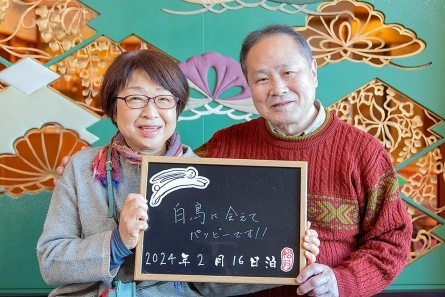 白鳥に会えて
ハッピーです!!
2024年2月16日泊